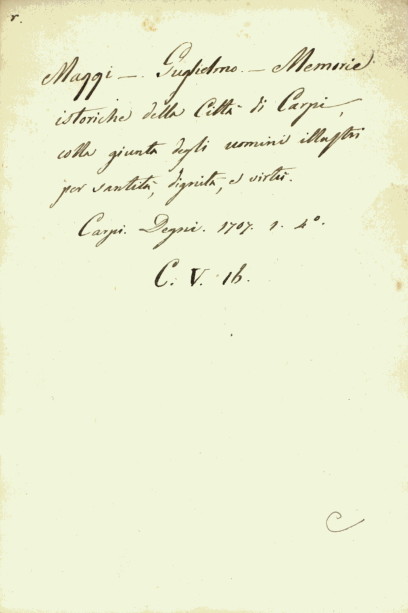 r.
Maggi — Guglielmo — Memorie
istoriche della Città di Carpi,
colla giunta degli uomini illustri
per santità, dignità, e virtù.
Carpi. Degni. 1707. 1. 4°.
C. V. 16.